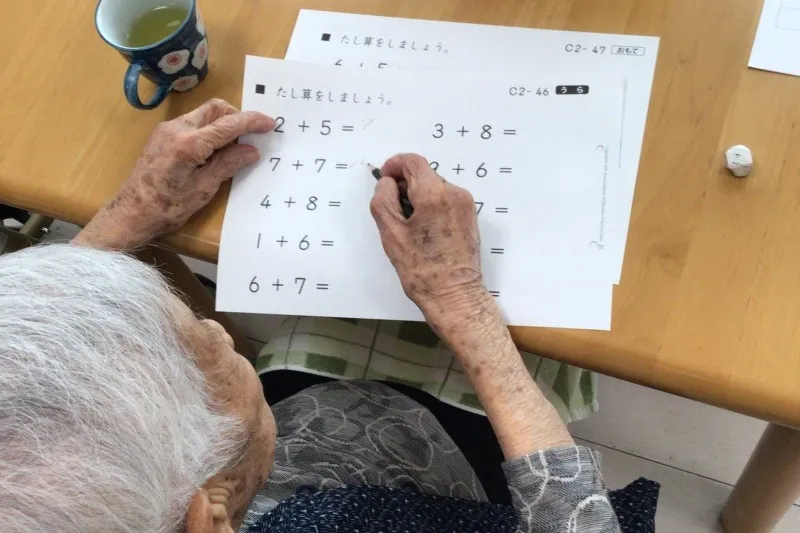 ■ たし算をしましょう。 C2-47 おもて
■ たし算をしましょう。 C2-46 うら
2 + 5 = 7
3 + 8 =
7 + 7 =
+ 6 =
4 + 8 =
7 =
1 + 6 =
=
6 + 7 =
=